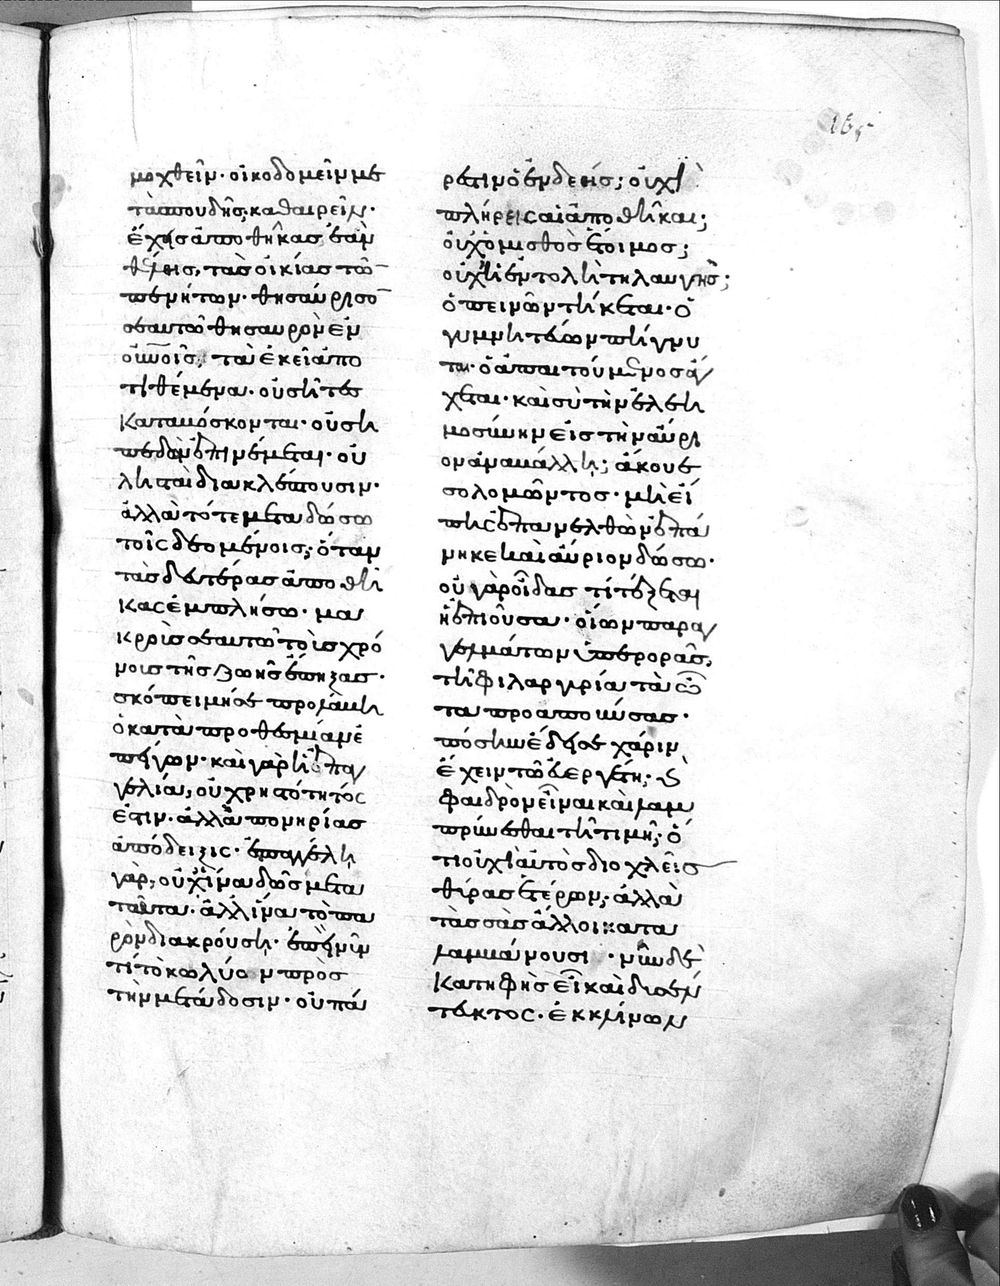 165
μοχθεῖν· οἰκοδομεῖν με
τὰ σπουδῆς· καθαιρεῖν·
ἔχεις ἀποθήκας ἐὰν
θέλεις, τὰς οἰκίας τῶ
πενήτων· θησαύρισο
σεαυτῶ θησαυρὸν ἐν
οὐνοῖς, τὰ ἐκεῖ ἀπο
τιθέμενα· οὐ σῆτες
καταβόσκονται· οὐ ση
πεδὼν ἐπινέμεται· οὐ
λησταὶ διακλέπτουσιν·
ἀλλὰ τότε μεταδώσω
τοῖς δεομένοις, ὅταν
τὰς δευτέρας ἀποθή
κας ἐμπλήσω· μα
κροὺς σεαυτῶ τοὺς χρό
νους τῆς ζωῆς ἔπηξας·
σκόπει μή σε προλάβη
ὁ κατὰ προθεσμίαν ἐ
πείγων· καὶ γὰρ ἡ ἐπαγ
γελία, οὐ χρηστότητός
ἐστιν. ἀλλὰ πονηρίας
ἀπόδειξις· ἐπαγγέλη
γὰρ, οὐχ ἵνα δῶς μετα
ταῦτα· ἀλλ ἵνα τὸ πα
ρὸν διακρούση· ἐπεὶ νῦν
τί τὸ κωλύον πρὸς
τὴν μετάδοσιν· οὐ πά
ρεστιν ὁ ἐνδεής; οὐχὶ
πλήρεις αἱ ἀποθῆκαι;
οὐχ ὁ μισθὸς ἕτοιμος;
οὐχ ἡ ἐντολὴ τηλαυγής;
ὁ πεινῶν τήκεται· ὁ
γυμνητεύων πήγνυ
ται· ὁ ἀπαιτούμενος ἄγ
χεται· καὶ σὺ τὴν ἐλεη
μοσύνην εἰς τὴν αὔρι
ον ἀναβάλλη; ἄκουε
σολομῶντος· μὴ εἴ
πης ἐπανελθὼν ἐπά
νηκε καὶ αὔριον δώσω·
οὐ γὰρ οἶδας τί τέξεται
ἡ ἐπιοῦσα· οἵων παραγ
γελμάτων ὑπερορᾶς,
τῆ φιλαργυρία τὰ ὦ
τα προαποβύσας·
πόσην ἔδει σε χάριν
ἔχειν τῶ εὐεργέτη· κ
φαιδρὸν εἶναι καὶ λαμ
πρύνεσθαι τῆ τιμῆ; ὅ
τι οὐχὶ αὐτὸς διοχλεῖς
θύρας ἑτέρων, ἀλλὰ
τὰς σὰς ἄλλοι κατα
λαμβάνουσι· νῦν δὲ
κατηφὴς εἶ καὶ δυσέν
τευκτος· ἐκκλίνων